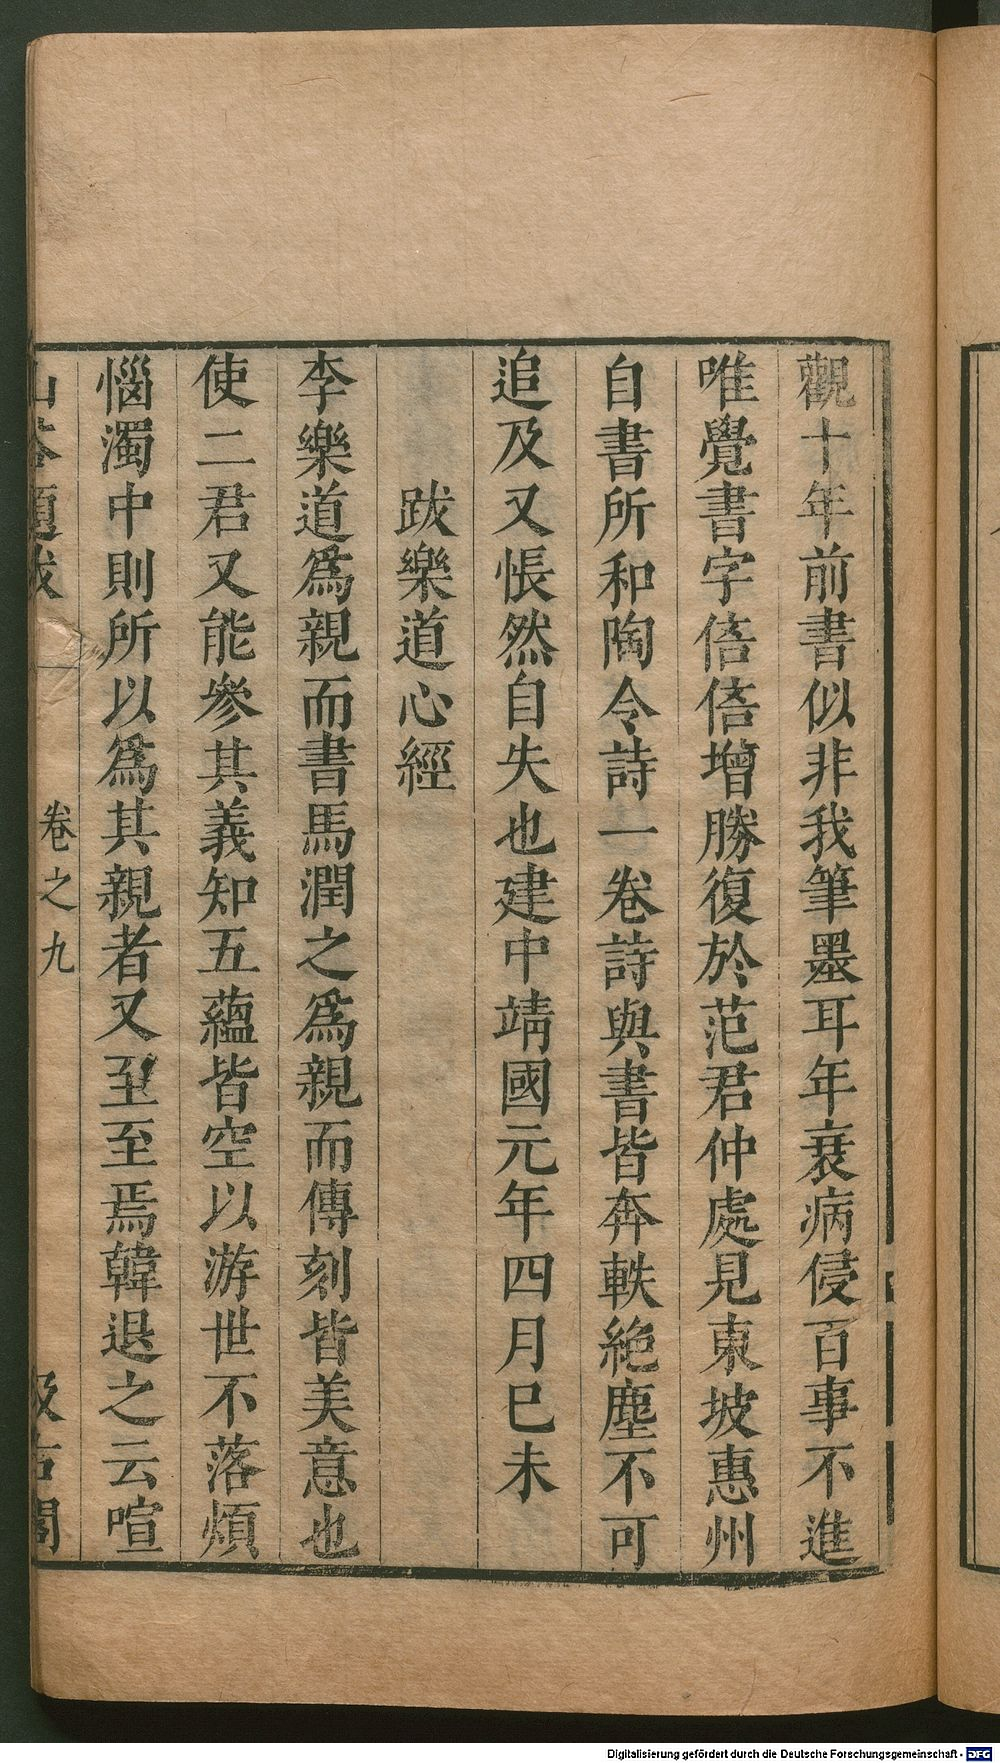 觀十年前書似非我筆墨耳年衰病侵百事不進
唯覺書字倍倍增勝復於范君仲處見東坡惠州
自書所和陶令詩一卷詩與書皆奔軼絶塵不可
追及又悵然自失也建中靖國元年四月巳未
跋樂道心經
李樂道爲親而書馬潤之爲親而傳刻皆美意也
使二君又能參其義知五蘊皆空以游世不落煩
惱濁中則所以爲其親者又至至焉韓退之云喧
山谷題跋 卷之九 汲古閣
Digitalisierung gefördert durch die Deutsche Forschungsgemeinschaft - DFG